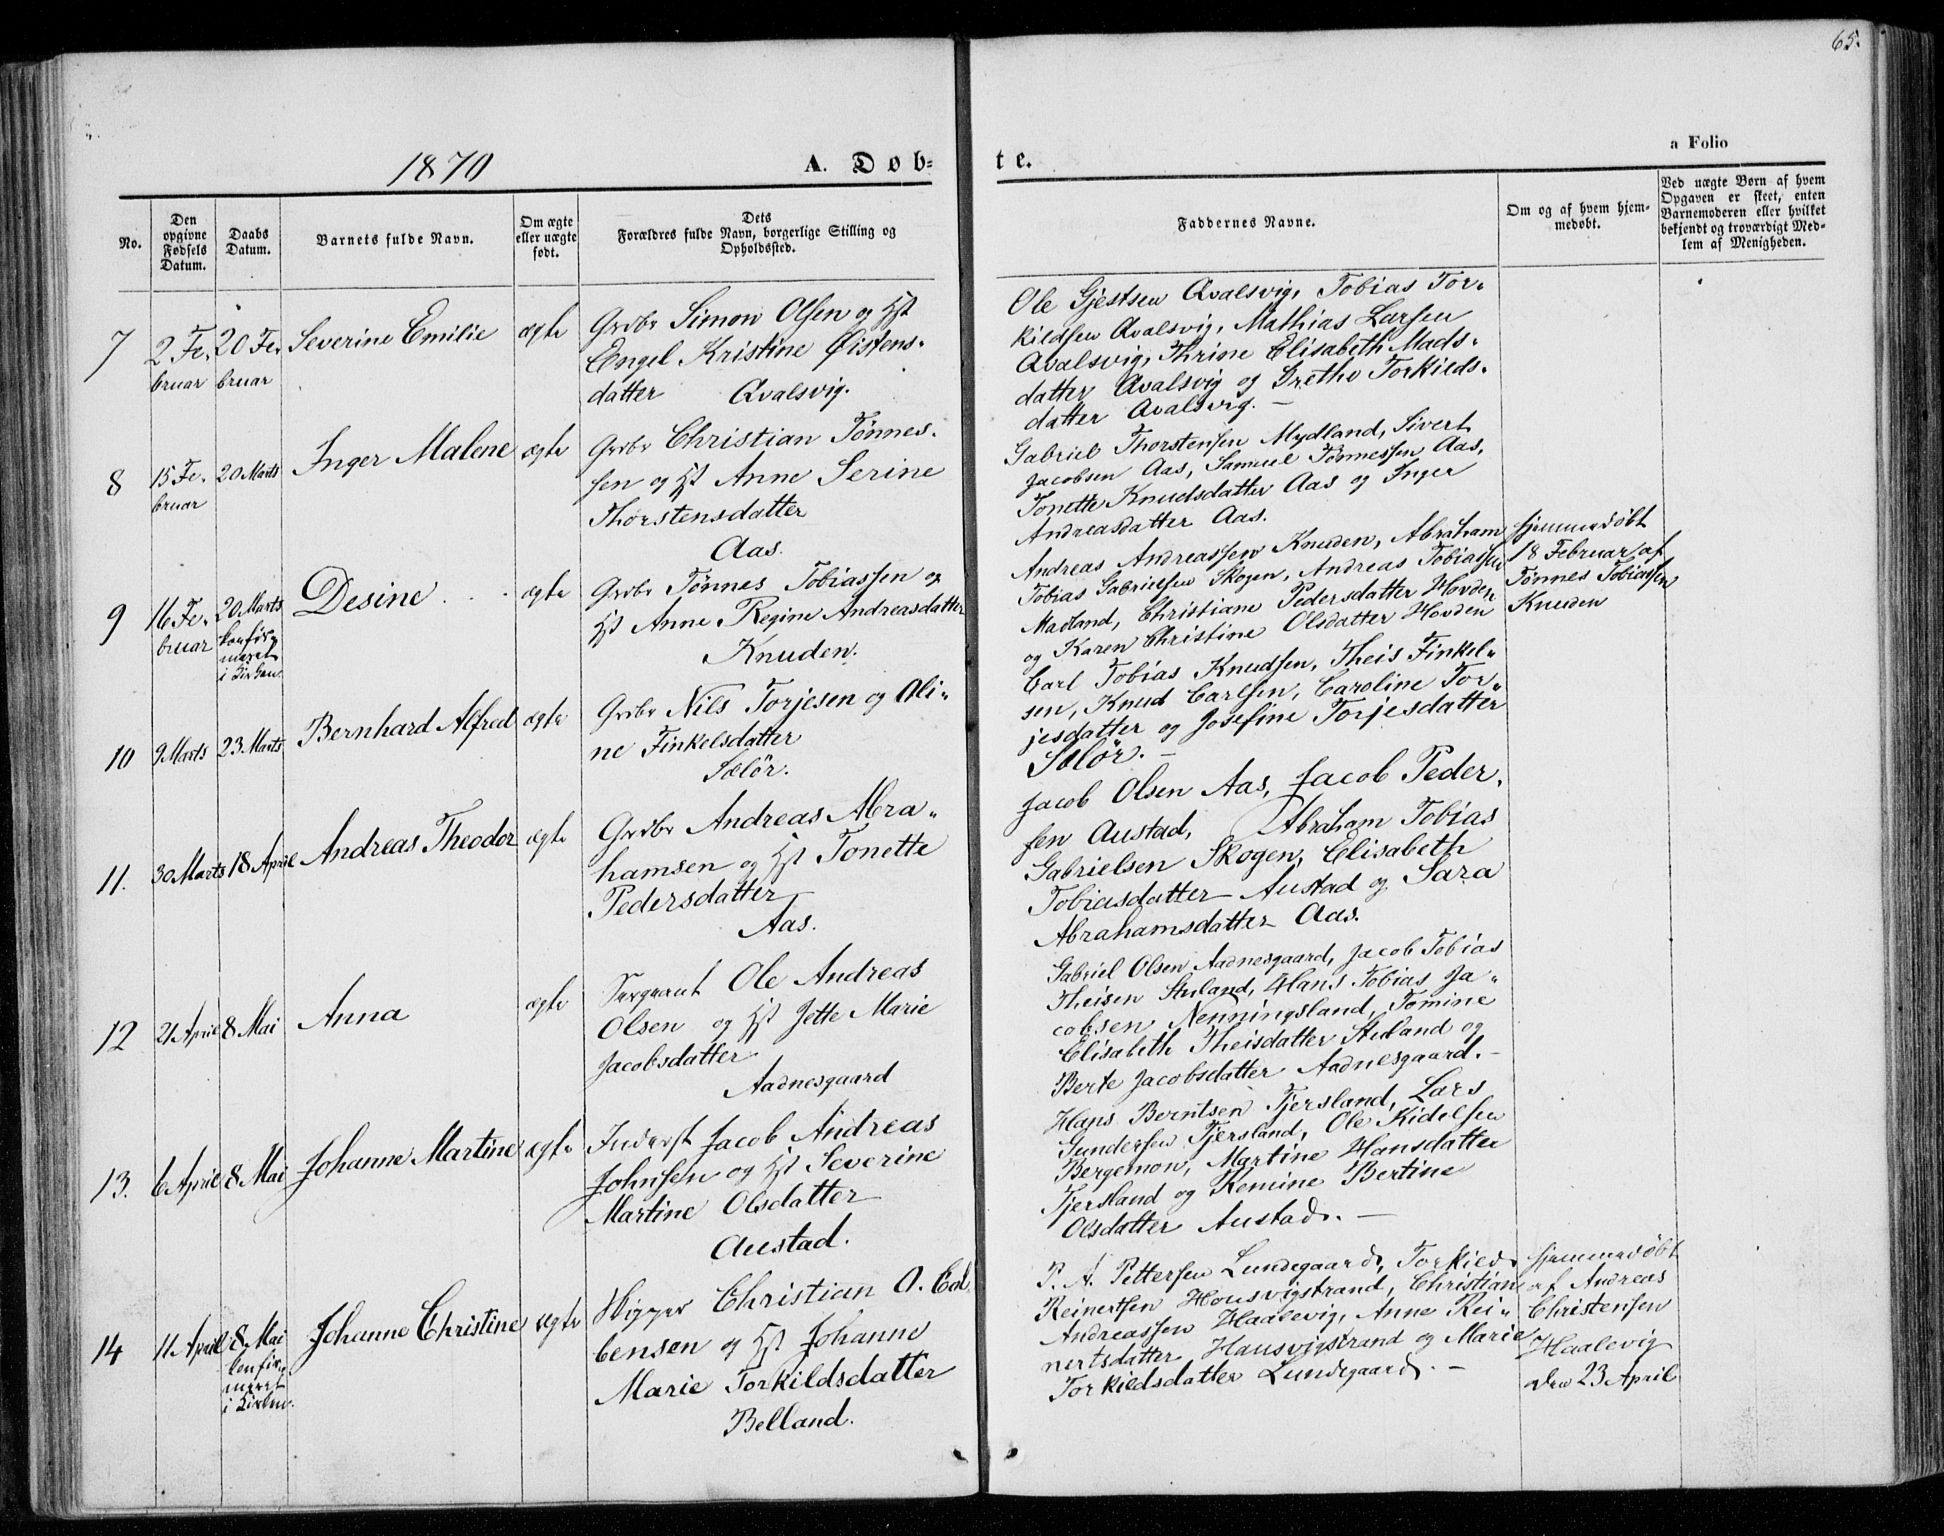 65.
1870
A. Døb-
te.
a Folio
No.
Den
opgivne
Fødsels
Datum.
Daabs
Datum.
Barnets fulde Navn.
Om ægte
eller uægte
født.
Dets
Forældres fulde Navn, borgerlige Stilling og
Opholdssted.
Faddernes Navne.
Om og af hvem hjem-
medøbt.
Ved uægte Børn af hvem
Opgaven er skeet, enten
Barnemoderen eller hvilket
bekjendt og troværdigt Med-
lem af Menigheden.
7
2 Fe-
bruar
20 Fe-
bruar
Severine Emilie
ægte
Grdbr Simon Olsen og Hst
Engel Kristine Øistens-
datter Qvalsvig.
Ole Gjestsen Qvalsvig, Tobias Tor-
kildsen Qvalsvig, Mathias Larsen
Qvalsvig, Thrine Elisabeth Mads-
datter Qvalsvig og Grethe Torkilds-
datter Qvalsvig.-
8
15 Fe-
bruar
20 Marts
Inger Malene
ægte
Grdbr Christian Tønnes-
sen og Hst Anne Serine
Thorstensdatter
Aas.
Gabriel Thorstensen Mydland, Sivert
Jacobsen Aas, Samuel Tønnessen Aas,
Tonette Knudsdatter Aas og Inger
Andreasdatter Aas.
9
16 Fe-
bruar
20 Marts
konfir-
meret
i Kirken
Desine
ægte
Grdbr Tønnes Tobiassen og
Hst Anne Regine Andreasdatter
Knuden.
Andreas Andreassen Knuden, Abraham
Tobias Gabrielsen Skogen, Andreas Tobiassen
Madland, Christiane Pedersdatter Hovden
og Karen Christine Olsdatter Hovden
hjemmedøbt
18 Februar af
Tønnes Tobiassen
Knuden
10
9 Marts
23. Marts
Bernhard Alfred
ægte
Grdbr Nils Torjesen og Oli-
ne Finkelsdatter
Sælör.
Carl Tobias Knudsen, Theis Finkel-
sen, Knud Carlsen, Caroline Tor-
jesdatter og Josefine Torjesdatter
Sælör.-
11.
30 Marts
18 April
Andreas Theodor
ægte
Grdbr Andreas Abra-
hamsen og Hst Tonette
Pedersdatter
Aas.
Jacob Olsen Aas, Jacob Peder-
sen Austad, Abraham Tobias
Gabrielsen Skogen, Elisabeth
Tobiasdatter Austad og Sara
Abrahamsdatter Aas.
12
21 April
8 Mai
Anna
ægte
Sergeant Ole Andreas
Olsen og Hst Jette Marie
Jacobsdatter
Aadnesgaard
Gabriel Olsen Aadnesgaard, Jacob Tobias
Theisen Stuland, Hans Tobias Ja-
cobsen Nenningsland, Tomine
Elisabeth Theisdatter Stuland og
Berte Jacobsdatter Aadnesgaard.-
13.
6 April
8 Mai
Johanne Martine
ægte
Inderst Jacob Andreas
Johnsen og Hst Severine
Martine Olsdatter
Austad.
Hans Berntsen Tjersland, Lars
Gundersen Tjersland, Ole Kidelsen
Bergemon, Martine Hansdatter
Tjersland og Kemine Bertine
Olsdatter Austad.-
14
11 April
8 Mai
konfir-
meret
i Kirken.
Johanne Christine
ægte
Skipper Christian O. Eal
bensen og Hst Johanne
Marie Torkildsdatter
Belland.
P. A. Pettersen Lundegaard, Torkild
Reinertsen Housvigstrand, Christian
Andreassen Haalevig, Anne Rei-
nertsdatter Hausvigstrand og Marie
Torkildsdatter Lundegaard.-
hjemmedøbt
af Andreas
Christensen
Haalevig
den 23 April